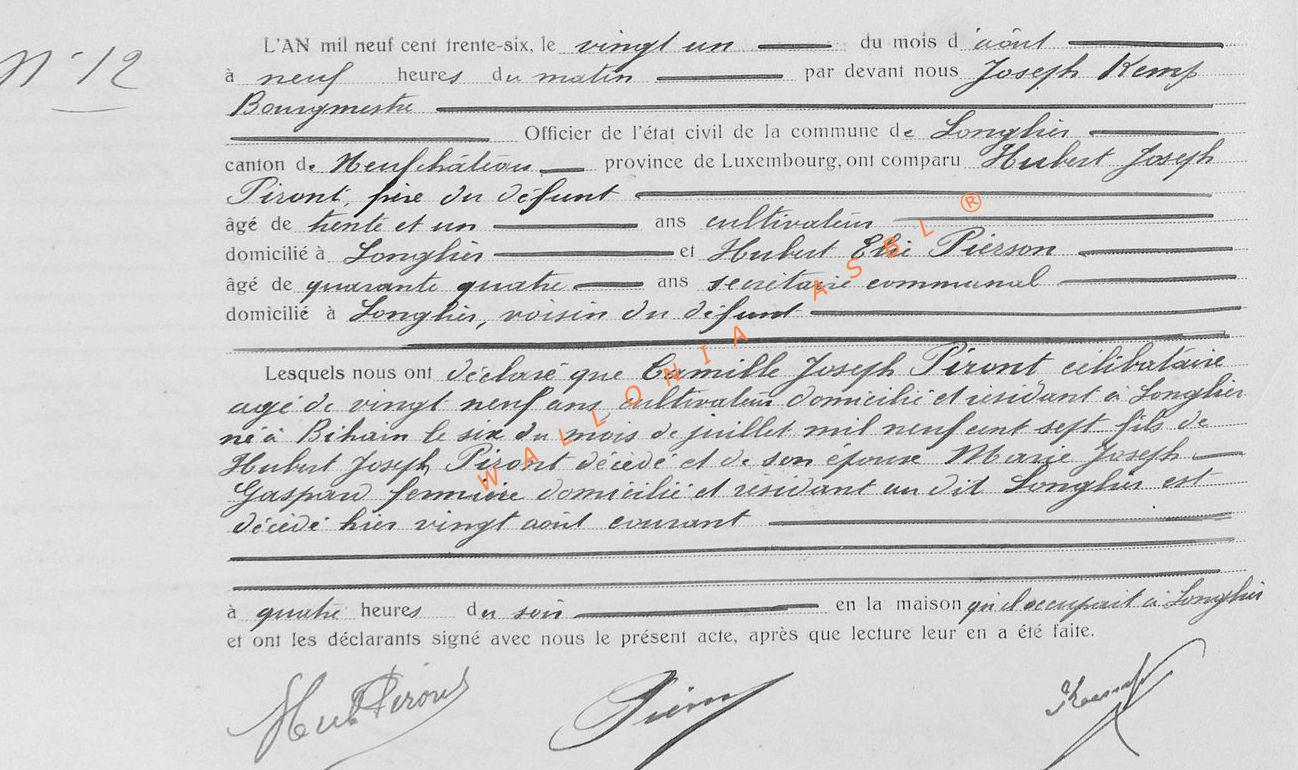 N° 12
L'AN mil neuf cent trente-six, le vingt un du mois d'août
à neuf heures du matin par devant nous Joseph Kemp
Bourgmestre
Officier de l'état civil de la commune de Longlier
canton de Neufchâteau province de Luxembourg, ont comparu Hubert Joseph
Piront, frère du défunt
âgé de trente et un ans cultivateur
domicilié à Longlier et Hubert Elie Pierson
âgé de quarante quatre ans secrétaire communal
domicilié à Longlier, voisin du défunt
Lesquels nous ont déclaré que Camille Joseph Piront célibataire
agé de vingt neuf ans cultivateur domicilié et résidant à Longlier
né à Bihain le six du mois de juillet mil neuf cent sept fils de
Hubert Joseph Piront décédé et de son épouse Marie Joseph
Gaspard fermière domicilié et résidant au dit Longlier est
décédé hier vingt août courant
à quatre heures du soir en la maison qu'il occupait à Longlier
et ont les déclarants signé avec nous le présent acte, après que lecture leur en a été faite.
Hub Piront
WALLONIA ASBL ®